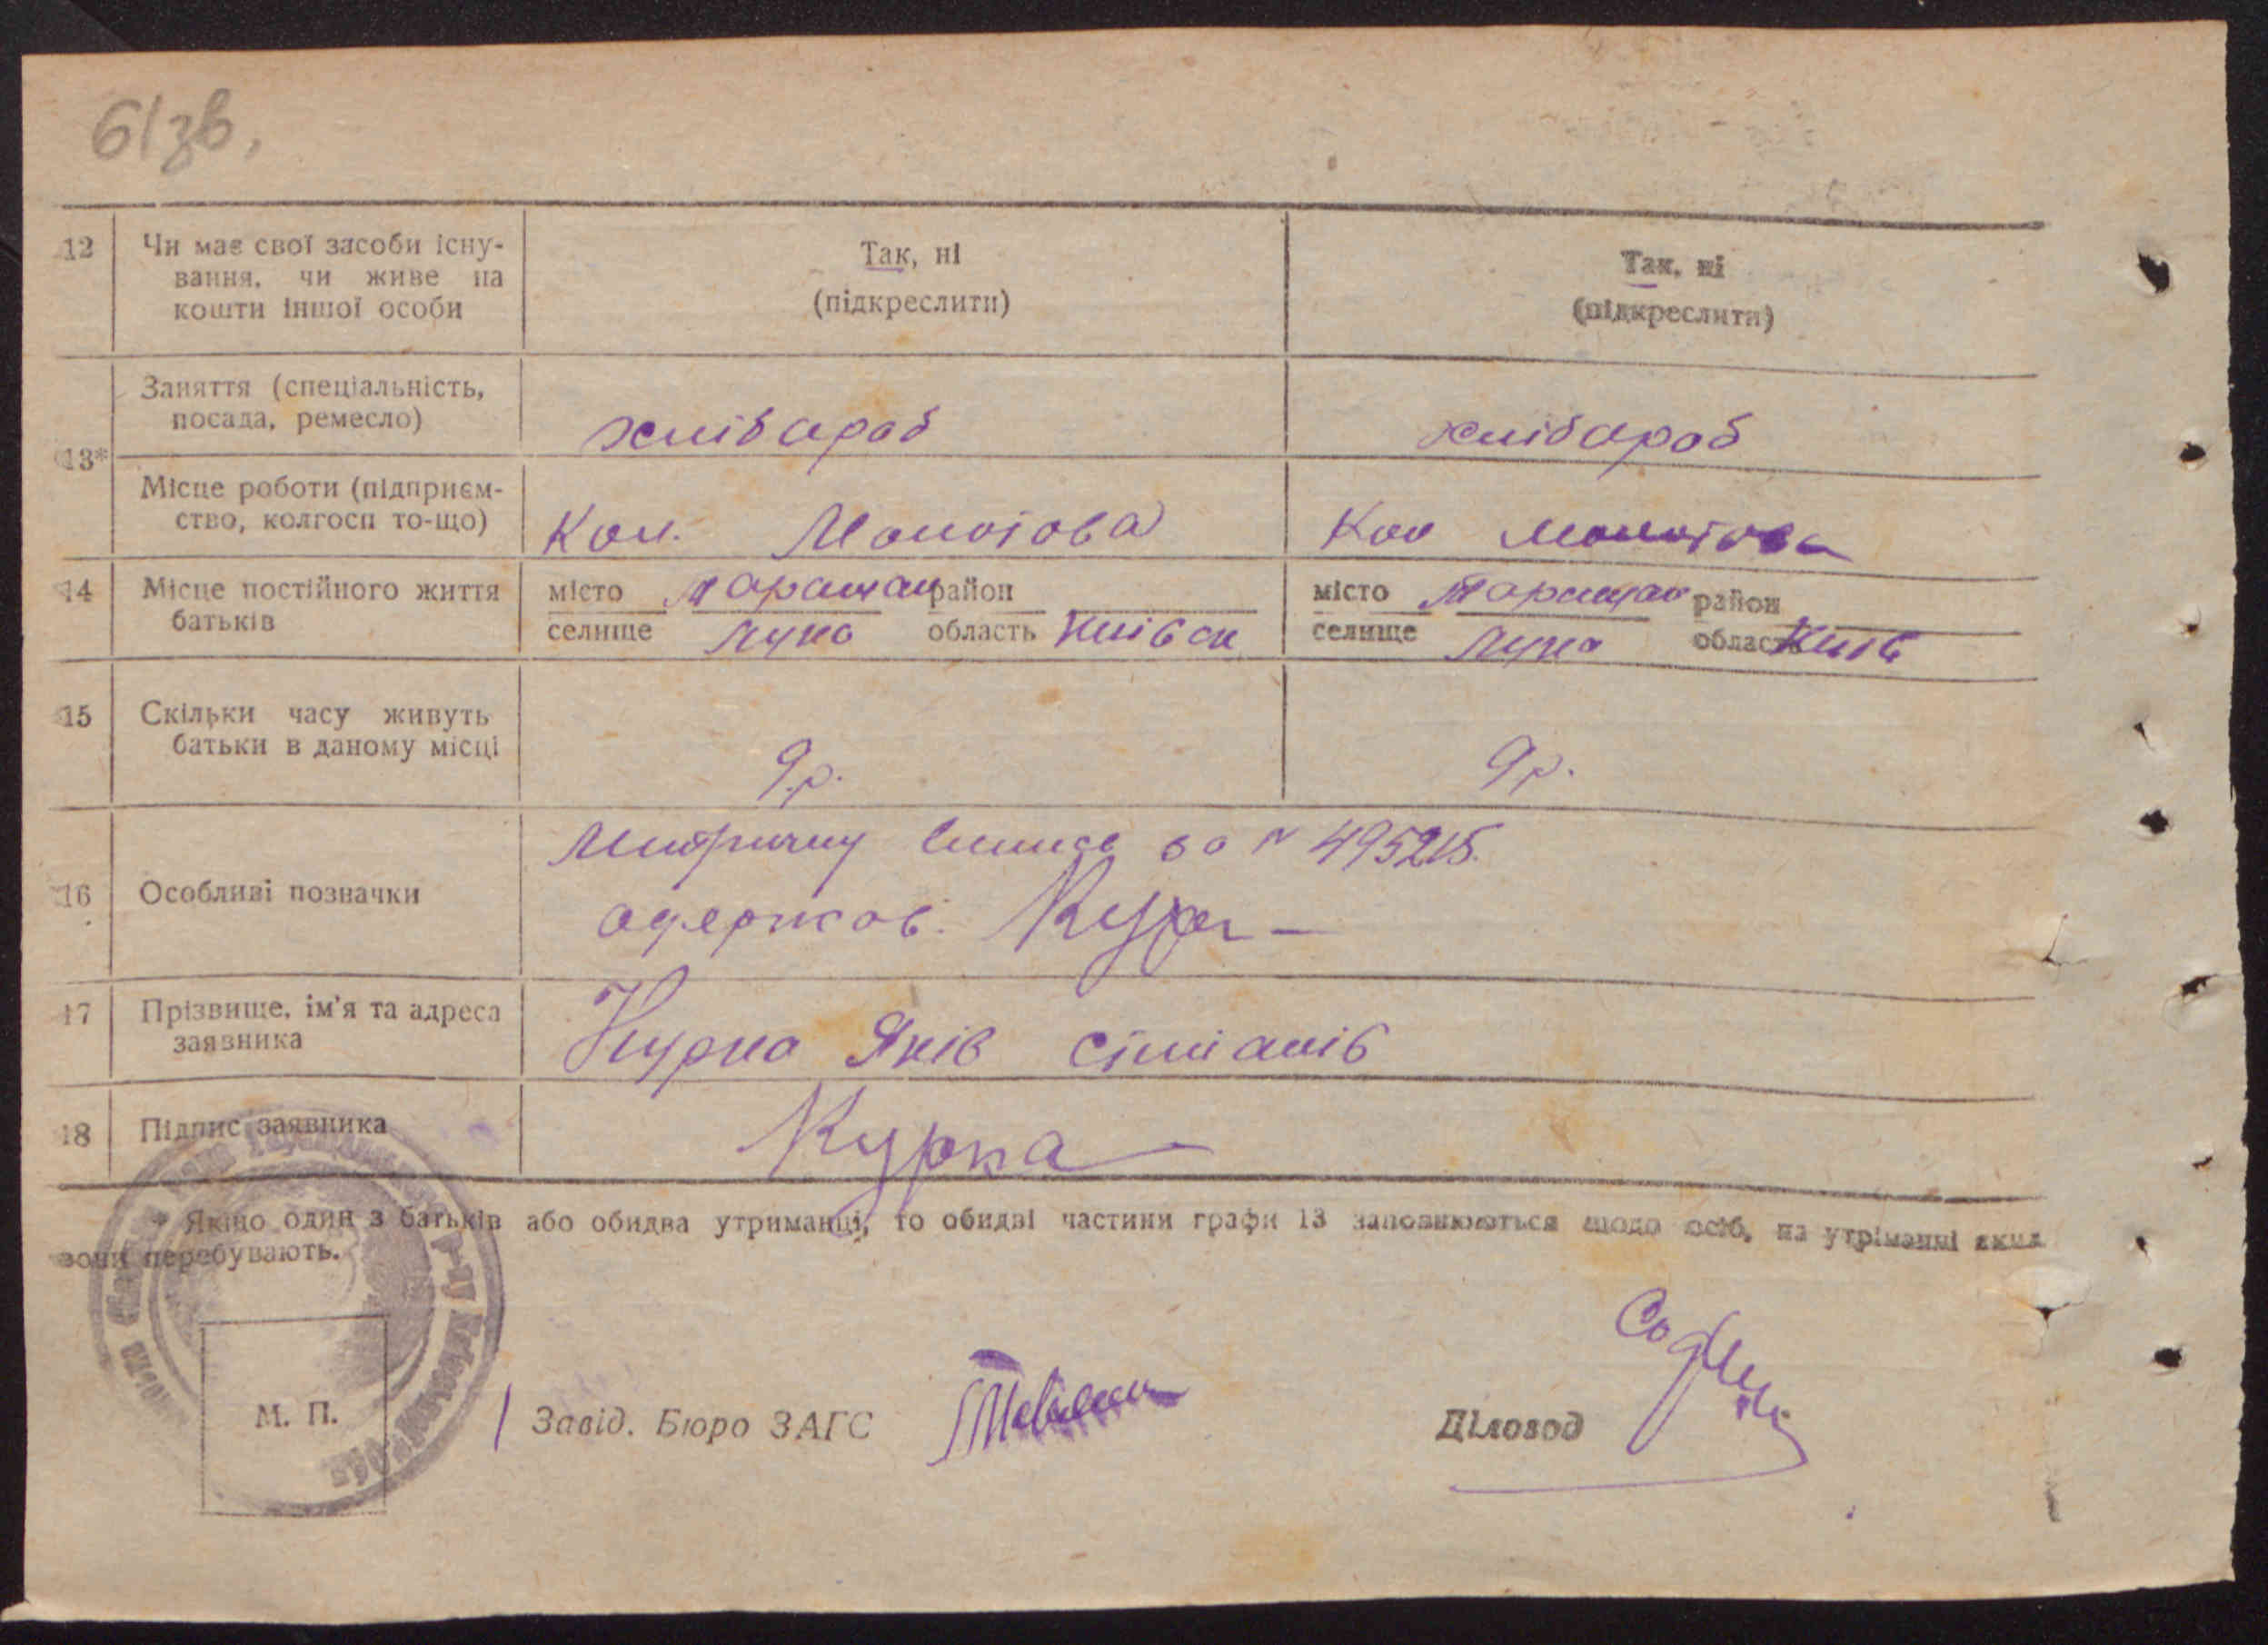 61зв.
12 Чи має свої засоби існу- Так, ні Так, ні
вання, чи живе на (підкреслити) (підкреслити)
кошти іншої особи
Заняття (спеціальність,
посада, ремесло) хлібороб хлібороб
13*
Місце роботи (підприєм-
ство, колгосп то-що) Кол. Молотова Кол Молотова
14 Місце постійного життя місто Таращан район місто Таращан район
батьків селище Лука область Київськ селище Лука область Київ
15 Скільки часу живуть
батьки в даному місці 9р. 9р.
Метричну випись за №
16 Особливі позначки одержав.
17 Прізвище, ім'я та адреса
заявника Курка Яків
18 Підпис заявника Курка
* Якщо один з батьків або обидва утриманці, то обидві частини графи 13 заповнюються щодо осіб, на утріманні яких
вони перебувають.
М. П. Завід. Бюро ЗАГС Діловод